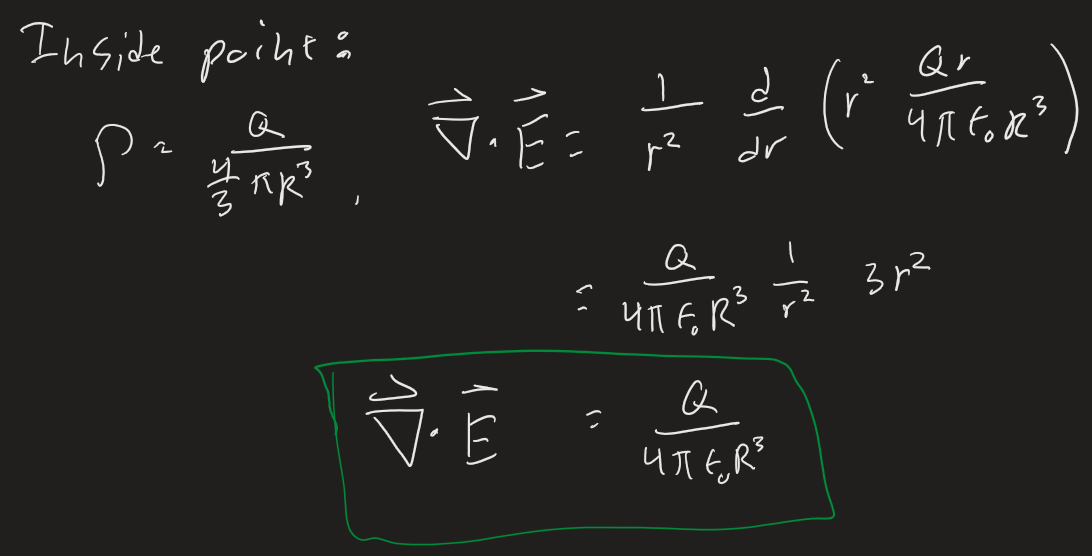 Inside point:
ρ = Q / (4/3 πR³) , ∇⃗ · E⃗ = 1/r² d/dr (r² Qr / (4πε₀R³))
= Q / (4πε₀R³) 1/r² 3r²
∇⃗ · E⃗ = Q / (4πε₀R³)